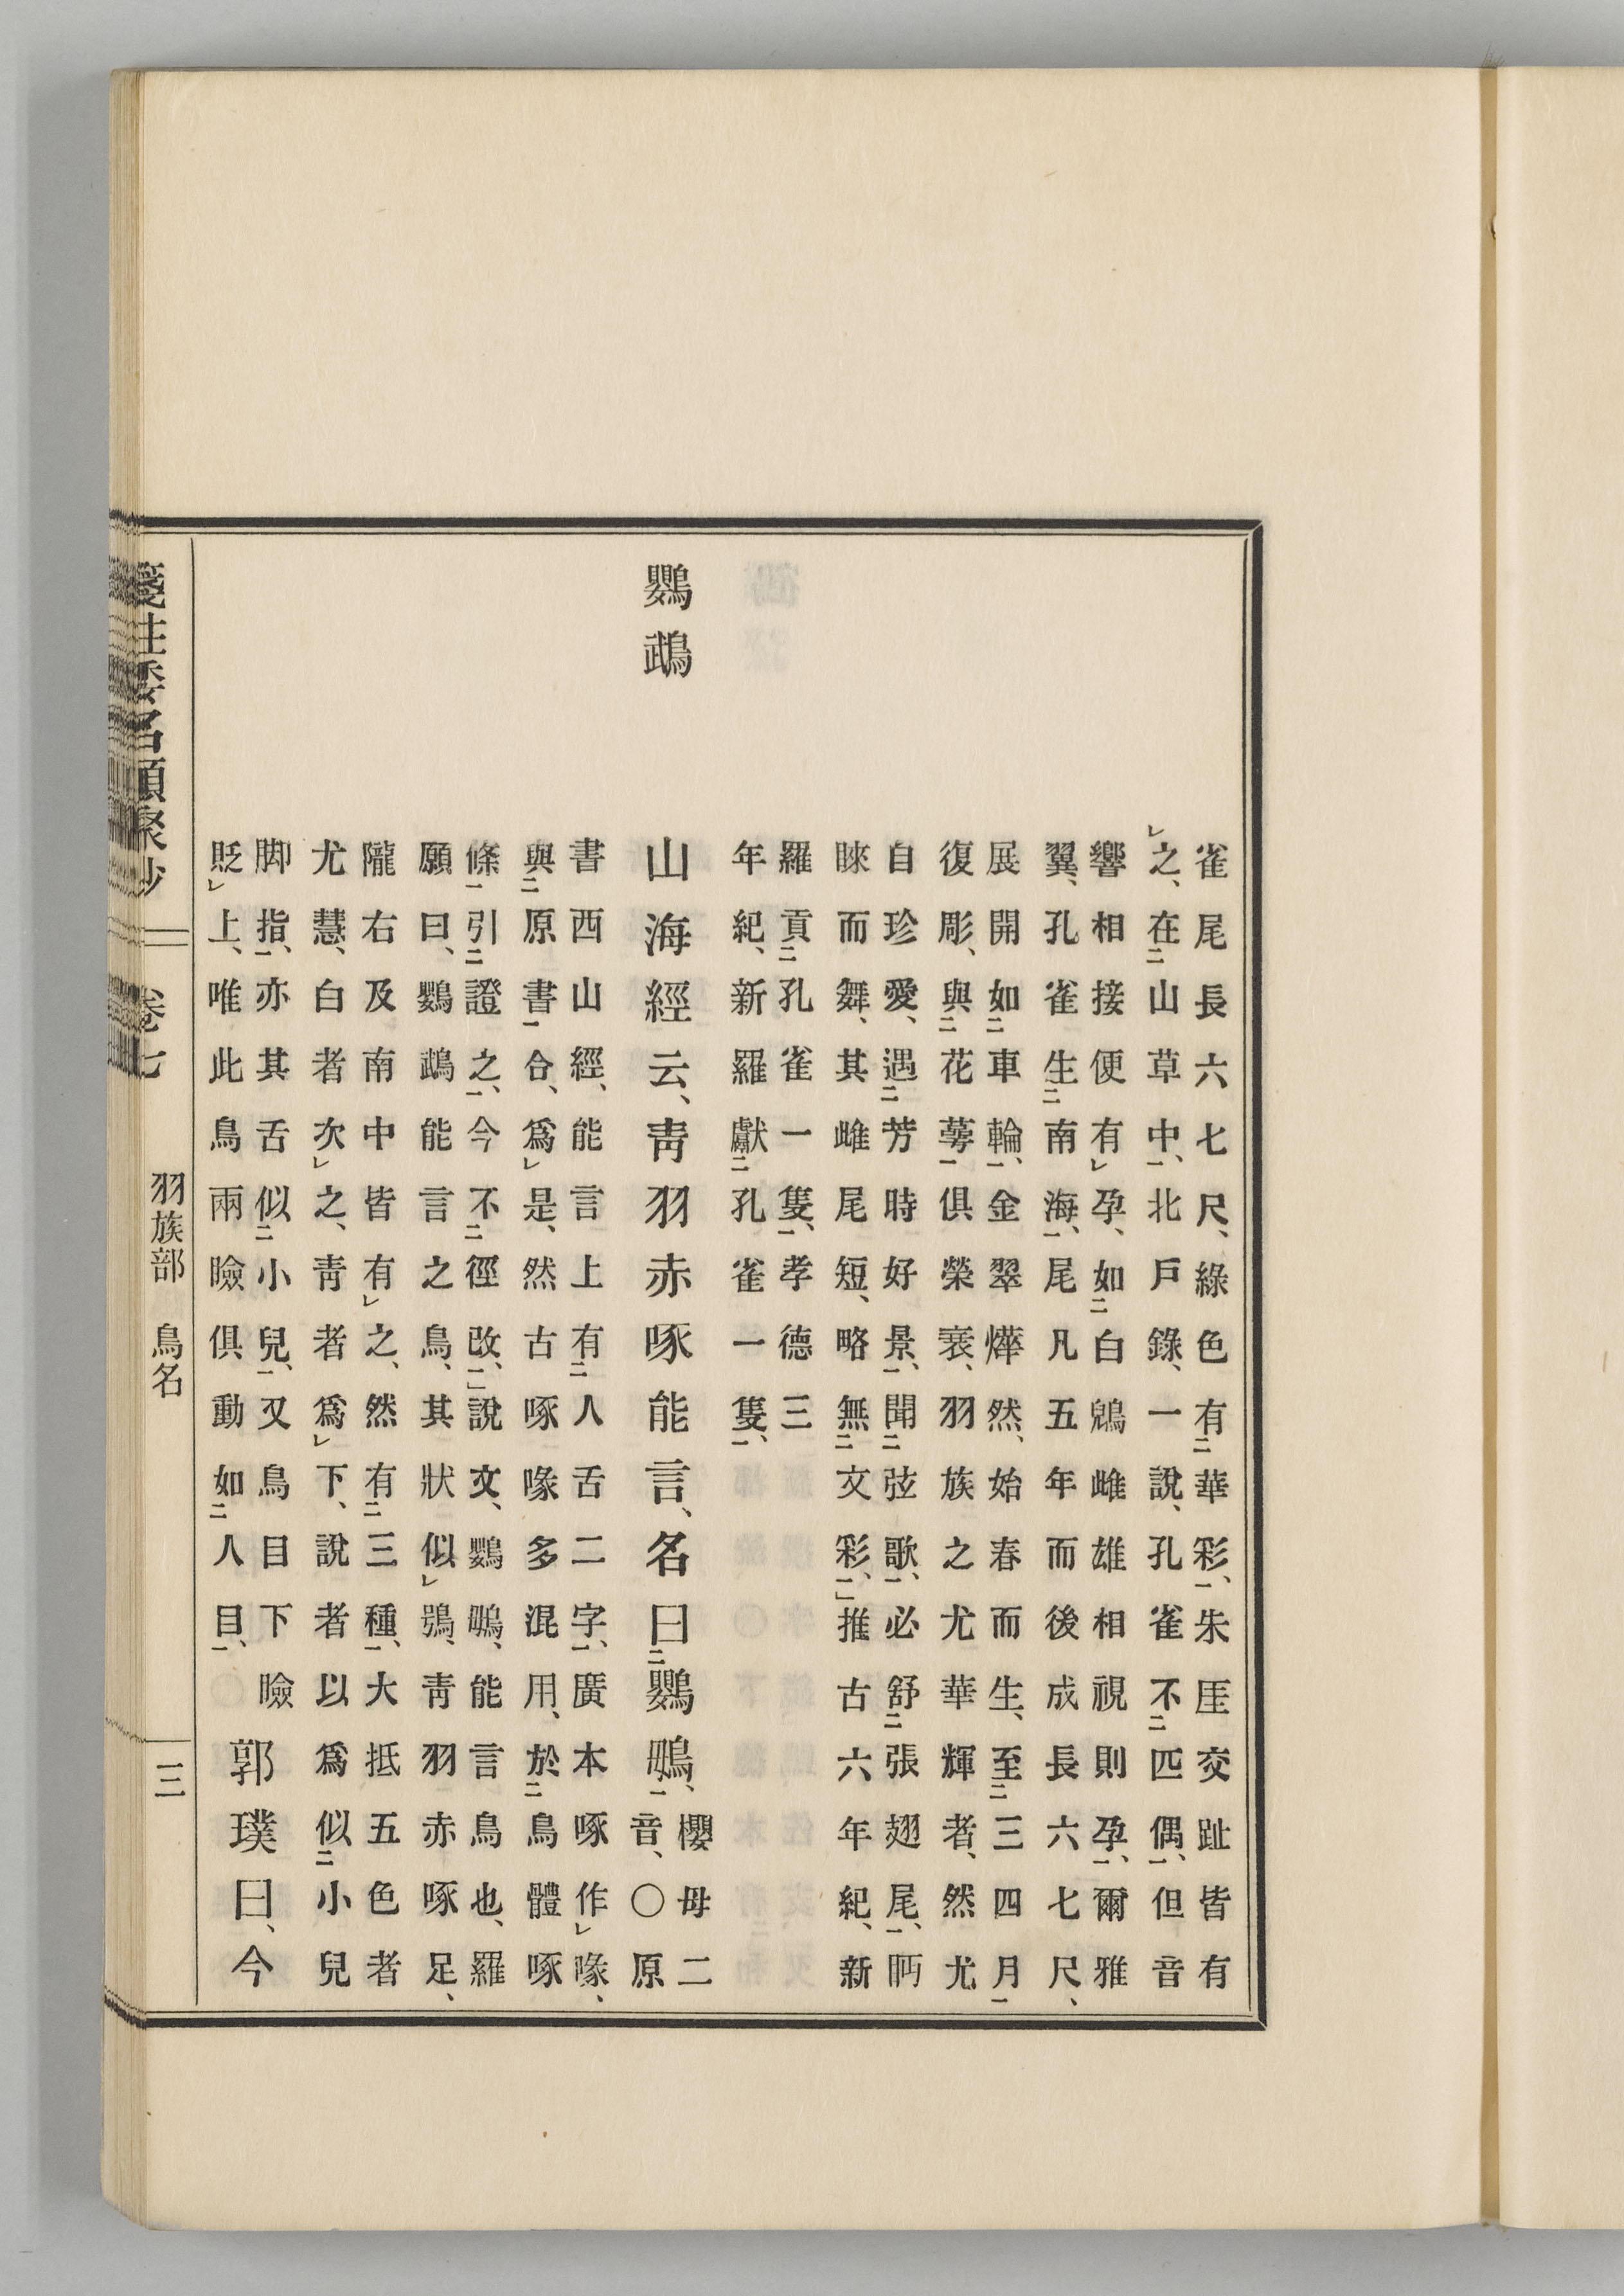 雀尾長六七尺、綠色有華彩、朱厓交趾皆有
之、在山草中、北戶錄、一說、孔雀不匹偶、但音
響相接便有孕、如白鷁雌雄相視則孕、爾雅
翼、孔雀生南海、尾凡五年而後成長六七尺、
展開如車輪、金翠燁然、始春而生、至三四月
復彫、與花蕚俱榮衰、羽族之尤華輝者、然尤
自珍愛、遇芳時好景、聞弦歌、必舒張翅尾、眄
睞而舞、其雌尾短、略無文彩、推古六年紀、新
羅貢孔雀一隻、孝德三
年紀、新羅獻孔雀一隻、
鸚䳇
山海經云、靑羽赤啄能言、名曰鸚䳇、
櫻母二
音、〇原
書西山經、能言上有人舌二字、廣本啄作喙、
與原書合、爲是、然古啄喙多混用、於鳥體啄
條引證之、今不徑改、說文、鸚䳇、能言鳥也、羅
願曰、鸚䳇能言之鳥、其狀似鴞、靑羽赤啄足、
隴右及南中皆有之、然有三種、大抵五色者
尤慧、白者次之、靑者爲下、說者以爲似小兒
脚指、亦其舌似小兒、又鳥目下瞼
貶上、唯此鳥兩瞼俱動如人目、
郭璞曰、今
箋注倭名類聚抄 卷七 羽族部 鳥名 三